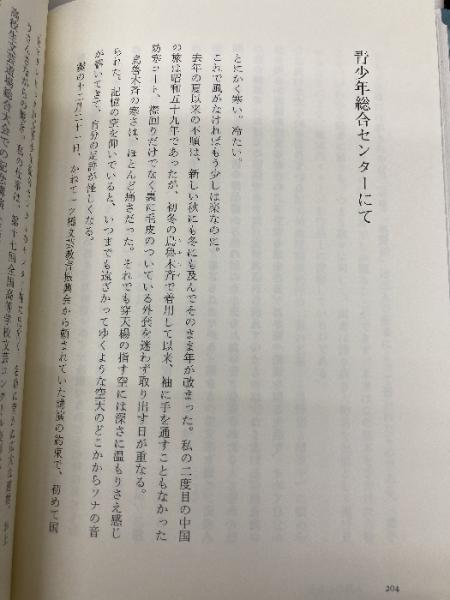 青少年総合センターにて
とにかく寒い。冷たい。
これで風がなければもう少しは楽なのに。
去年の夏以来の不順は、新しい秋にも冬にも及んでそのまま年が改まった。私の二度目の中国
の旅は昭和五十九年であったが、初冬の烏魯木斉で着用して以来、袖に手を通すこともなかった
防寒コート、襟回りだけでなく裏に毛皮のついている外套を迷わず取り出す日が重なる。
烏魯木斉の寒さは、ほとんど痛さだった。それでも穿天楊の指す空には深さに温もりさえ感じ
られた。記憶の空を仰いでいると、いつまでも遠ざかってゆくような空大のどこかからソナの音
が響いてきて、自分の足許が怪しくなる。
暮の十二月二十一日、かねて一ツ橋文芸教育振興会から頼まれていた講演の約束で、初めて国
高校生文芸道場総合大会での記念講演
204